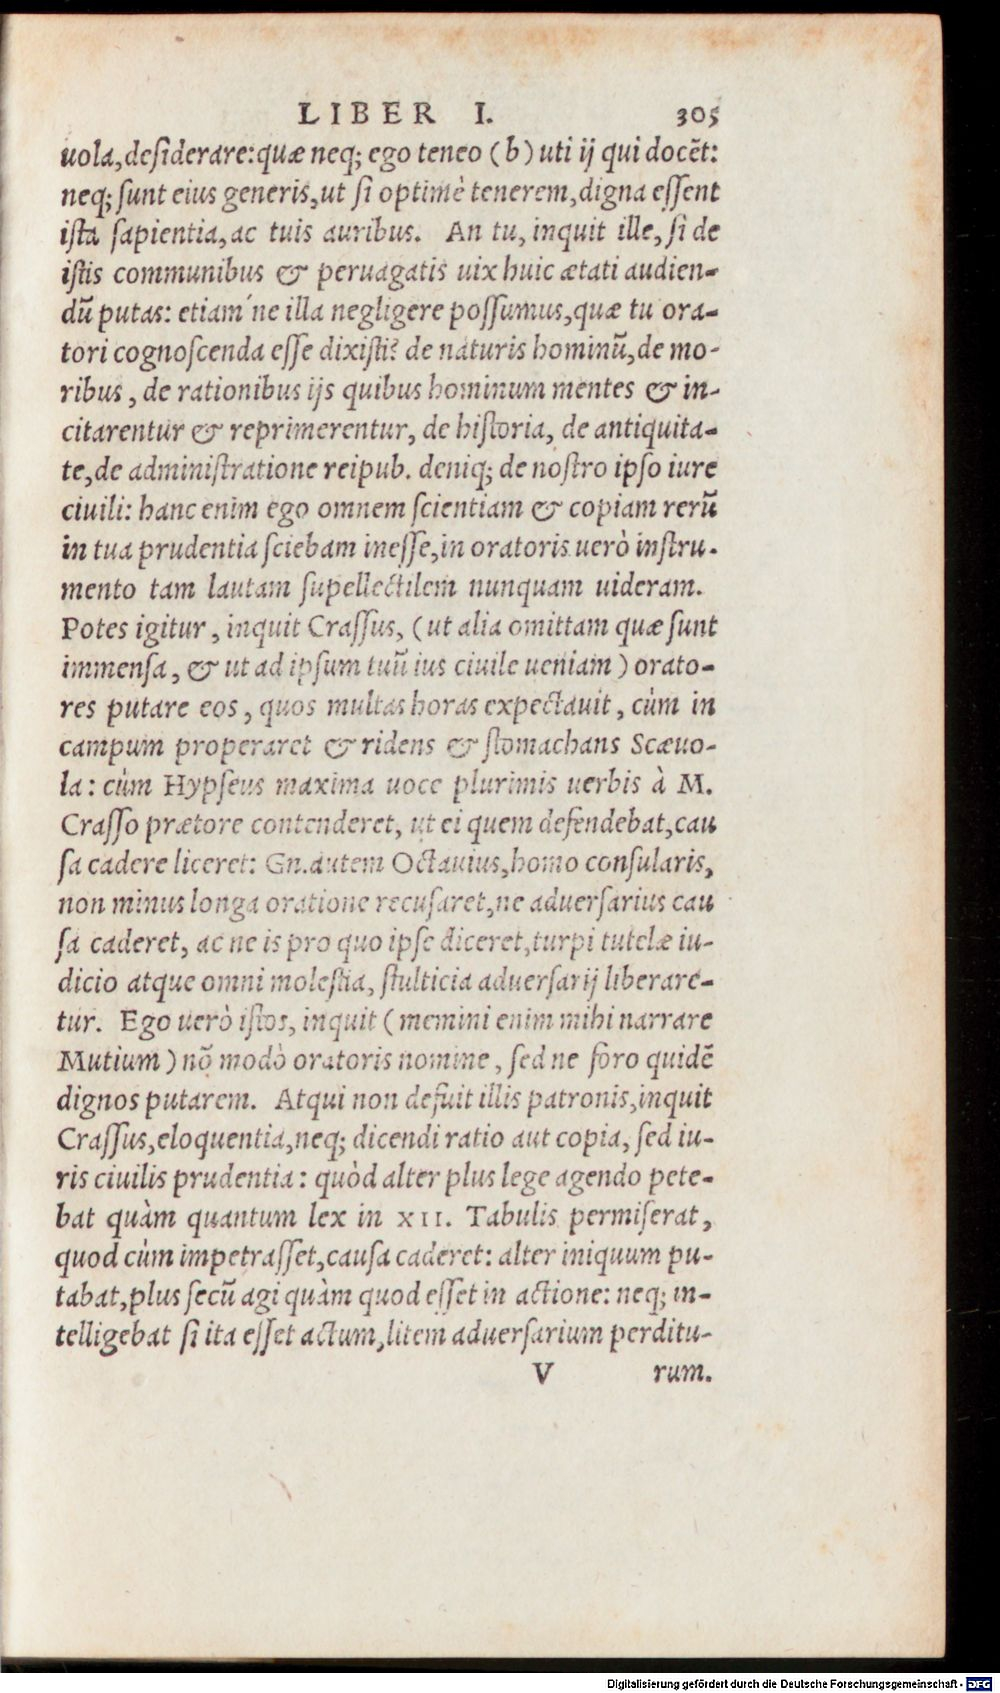 LIBER I. 305
uola,desiderare:quæ neq; ego teneo (b) uti ij qui docẽt:
neq; sunt eius generis,ut si optimè tenerem,digna essent
ista sapientia,ac tuis auribus. An tu, inquit ille, si de
istis communibus & peruagatis uix huic ætati audien-
dũ putas: etiam´ne illa negligere possumus,quæ tu ora-
tori cognoscenda esse dixisti? de naturis hominũ,de mo-
ribus, de rationibus ijs quibus hominum mentes & in-
citarentur & reprimerentur, de historia, de antiquita-
te,de administratione reipub. deniq; de nostro ipso iure
ciuili: hanc enim ego omnem scientiam & copiam rerũ
in tua prudentia sciebam inesse,in oratoris uerò instru-
mento tam lautam supellectilem nunquam uideram.
Potes igitur, inquit Crassus, (ut alia omittam quæ sunt
immensa, & ut ad ipsum tuũ ius ciuile ueniam) orato-
res putare eos, quos multas horas expectauit, cùm in
campum properaret & ridens & stomachans Scæuo-
la: cùm Hypseus maxima uoce plurimis uerbis à M.
Crasso prætore contenderet, ut ei quem defendebat,cau
sa cadere liceret: Gn.autem Octauius,homo consularis,
non minus longa oratione recusaret,ne aduersarius cau
sa caderet, ac ne is pro quo ipse diceret,turpi tutelæ iu-
dicio atque omni molestia, stulticia aduersarij liberare-
tur. Ego uerò istos, inquit (memini enim mihi narrare
Mutium) nõ modò oratoris nomine, sed ne foro quidẽ
dignos putarem. Atqui non defuit illis patronis,inquit
Crassus,eloquentia,neq; dicendi ratio aut copia, sed iu-
ris ciuilis prudentia: quòd alter plus lege agendo pete-
bat quàm quantum lex in XII. Tabulis permiserat,
quod cùm impetrasset,causa caderet: alter iniquum pu-
tabat,plus secũ agi quàm quod esset in actione: neq; in-
telligebat si ita esset actum,litem aduersarium perditu-
V rum.
Digitalisierung gefördert durch die Deutsche Forschungsgemeinschaft - DFG